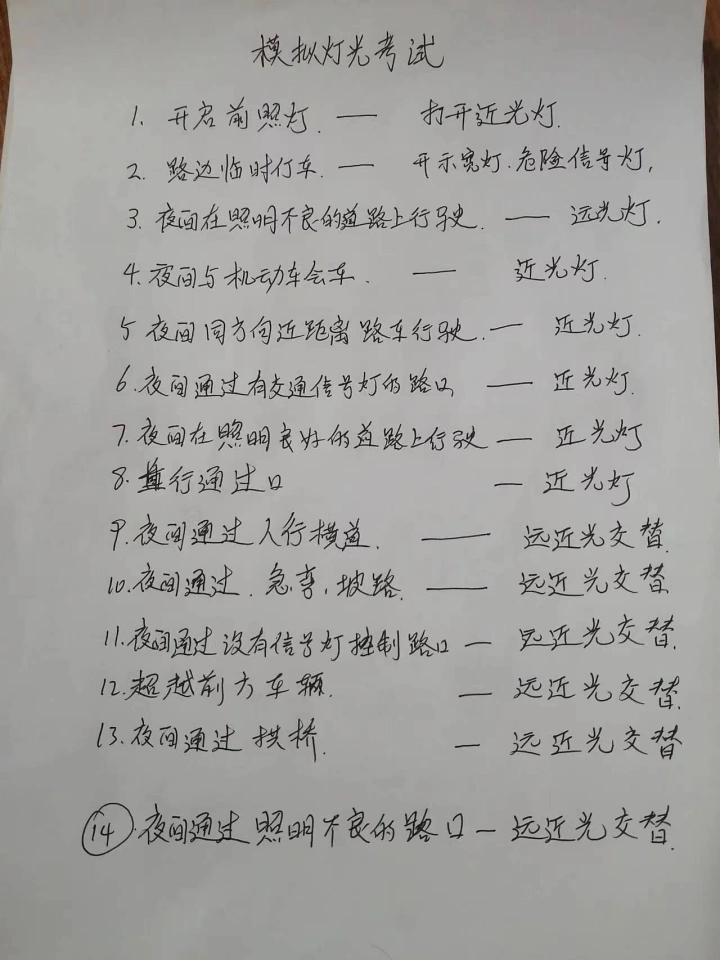 模拟灯光考试
1. 开启前照灯. — 打开近光灯.
2. 路边临时停车. — 开示宽灯.危险信号灯,
3. 夜间在照明不良的道路上行驶. — 远光灯.
4. 夜间与机动车会车. — 近光灯.
5 夜间同方向近距离路车行驶. — 近光灯.
6. 夜间通过有交通信号灯的路口 — 近光灯.
7. 夜间在照明良好的道路上行驶 — 近光灯
8. 直行通过口 — 近光灯
9. 夜间通过人行横道. — 远近光交替.
10. 夜间通过.急弯,坡路. — 远近光交替.
11. 夜间通过没有信号灯控制路口 — 远近光交替.
12. 超越前方车辆. — 远近光交替.
13. 夜间通过拱桥. — 远近光交替
14. 夜间通过照明不良的路口 — 远近光交替.